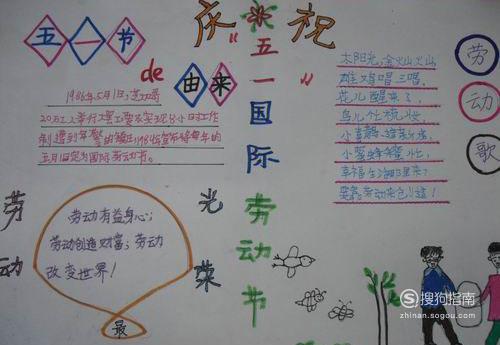 五一节
de
由来
1986年5月1日,芝加哥
20万工人举行大罢工要求实现8小时工作
五月1日定为国际劳动节。
庆祝
“五一”国际劳动节
太阳光,金灿灿,
雄鸡唱三唱,
花儿醒来了,
鸟儿忙梳妆,
小喜鹊
小蜜蜂
幸福生活哪里来?
要靠劳动来创造!
劳动歌
劳动
光荣
最
劳动有益身心;
劳动创造财富;劳动
改变世界!
S 搜狗指南
zhinan.sogou.com